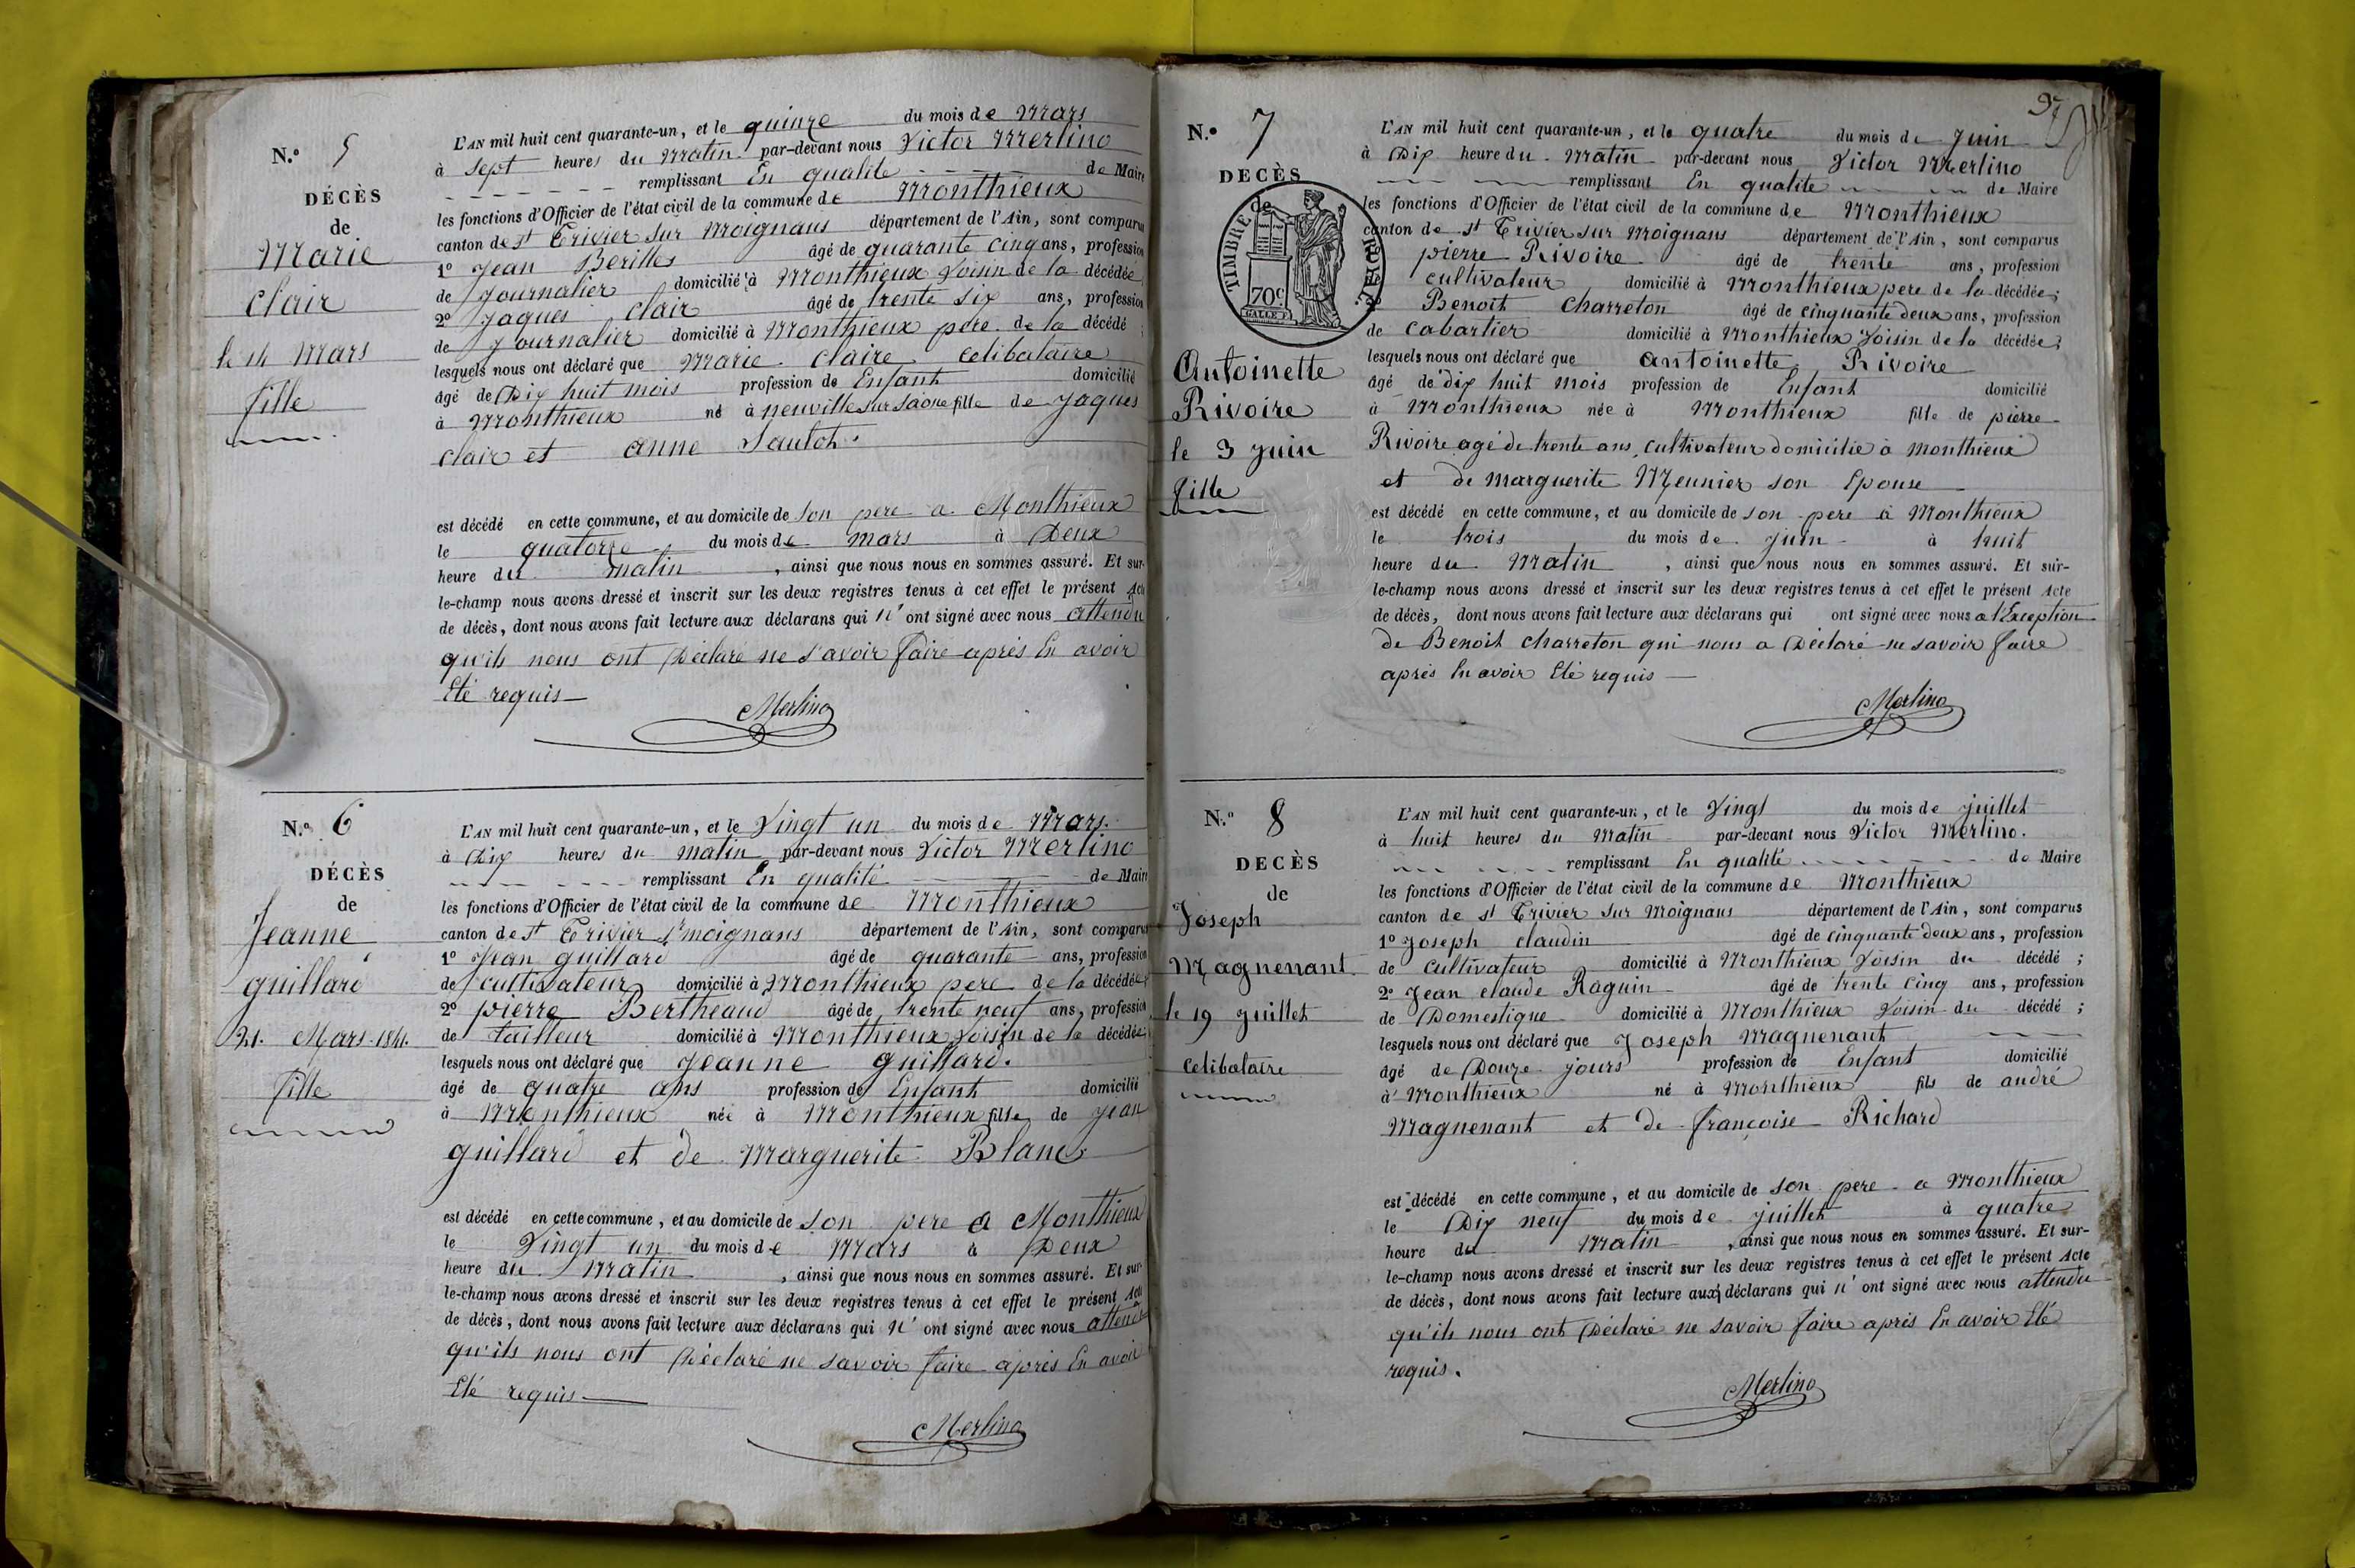 N.º 5
DÉCÈS
de
Marie
Clair
le 14 Mars
fille
L'AN mil huit cent quarante-un, et le quinze du mois de Mars
à sept heures du Matin par-devant nous Victor Merlino
remplissant En qualité de Maire
les fonctions d'Officier de l'état civil de la commune de Monthieux
canton de St Trivier sur Moignans département de l'Ain, sont comparus
1º Jean Berilles âgé de quarante cinq ans, profession
de Journalier domicilié à Monthieux Voisin de la décédée
2º Jaques Clair âgé de trente six ans, profession
de Journalier domicilié à Monthieux pere de la décédé ;
lesquels nous ont déclaré que Marie Claire Celibataire
âgé de Dix huit mois profession de Enfant domicilié
à Monthieux né à neuville sur Saone fille de Jaques
Clair et anne
est décédé en cette commune, et au domicile de Son pere a Monthieux
le quatorze du mois de mars à Deux
heure du matin, ainsi que nous nous en sommes assuré. Et sur-
le-champ nous avons dressé et inscrit sur les deux registres tenus à cet effet le présent Acte
de décès, dont nous avons fait lecture aux déclarans qui n'ont signé avec nous attendu
qu'ils nous ont Déclaré ne savoir faire après En avoir
Eté requis
Merlino
N.º 6
DÉCÈS
de
Jeanne
guillard
21. Mars 1841.
fille
L'AN mil huit cent quarante-un, et le Vingt un du mois de Mars.
à Dix heures du matin par-devant nous Victor Merlino
remplissant En qualité de Maire
les fonctions d'Officier de l'état civil de la commune de Monthieux
canton de St Trivier Sr moignans département de l'Ain, sont comparus
1º Jean guillard âgé de quarante ans, profession
de cultivateur domicilié à Monthieux pere de la décédée
2º pierre Bertheaud âgé de trente neuf ans, profession
de tailleur domicilié à Monthieux Voisin de la décédée
lesquels nous ont déclaré que Jeanne guillard.
âgé de quatre ans profession de Enfant domicilié
à Monthieux née à Monthieux fille de Jean
guillard et de Marguerite Blanc
est décédé en cette commune, et au domicile de Son pere a Monthieux
le Vingt un du mois de Mars à Deux
heure du Matin, ainsi que nous nous en sommes assuré. Et sur-
le-champ nous avons dressé et inscrit sur les deux registres tenus à cet effet le présent Acte
de décès, dont nous avons fait lecture aux déclarans qui n'ont signé avec nous attendu
qu'ils nous ont Déclaré ne savoir faire après En avoir
Eté requis
Merlino
N.º 7
DECÈS
de
TIMBRE ROYAL
70c
Antoinette
Rivoire
le 3 Juin
fille
L'AN mil huit cent quarante-un, et le quatre du mois de Juin
à Dix heure du Matin par-devant nous Victor Merlino
remplissant En qualité de Maire
les fonctions d'Officier de l'état civil de la commune de Monthieux
canton de St Trivier sur Moignans département de l'Ain, sont comparus
pierre Rivoire âgé de trente ans, profession
cultivateur domicilié à Monthieux pere de la décédée;
Benoit Charreton âgé de cinquante deux ans, profession
de Cabartier domicilié à Monthieux Voisin de la décédée;
lesquels nous ont déclaré que antoinette Rivoire
âgé de dix huit mois profession de Enfant domicilié
à Monthieux née à Monthieux fille de pierre
Rivoire agé de trente ans, cultivateur domicilié à monthieux
et de marguerite Meunier son Epouse
est décédé en cette commune, et au domicile de son pere à Monthieux
le trois du mois de Juin à huit
heure du Matin, ainsi que nous nous en sommes assuré. Et sur-
le-champ nous avons dressé et inscrit sur les deux registres tenus à cet effet le présent Acte
de décès, dont nous avons fait lecture aux déclarans qui ont signé avec nous a l'Exception
de Benoit Charreton qui nous a Déclaré ne savoir faire
après En avoir Eté requis
Merlino
N.º 8
DECÈS
de
Joseph
Magnenant
le 19 Juillet
Celibataire
L'AN mil huit cent quarante-un, et le Vingt du mois de Juillet
à huit heures du Matin par-devant nous Victor Merlino.
remplissant En qualité de Maire
les fonctions d'Officier de l'état civil de la commune de Monthieux
canton de St Trivier Sur Moignans département de l'Ain, sont comparus
1º Joseph Claudin âgé de cinquante deux ans, profession
de Cultivateur domicilié à Monthieux Voisin du décédé ;
2º Jean Claude Raguin âgé de trente cinq ans, profession
de Domestique domicilié à Monthieux Voisin du décédé ;
lesquels nous ont déclaré que Joseph Magnenant
âgé de Douze jours profession de Enfant domicilié
à Monthieux né à Monthieux fils de andré
Magnenant et de françoise Richard
est décédé en cette commune, et au domicile de son pere a Monthieux
le Dix neuf du mois de juillet à quatre
heure du Matin, ainsi que nous nous en sommes assuré. Et sur-
le-champ nous avons dressé et inscrit sur les deux registres tenus à cet effet le présent Acte
de décès, dont nous avons fait lecture aux déclarans qui n'ont signé avec nous attendu
qu'ils nous ont Déclaré ne savoir faire après En avoir Eté
requis.
Merlino